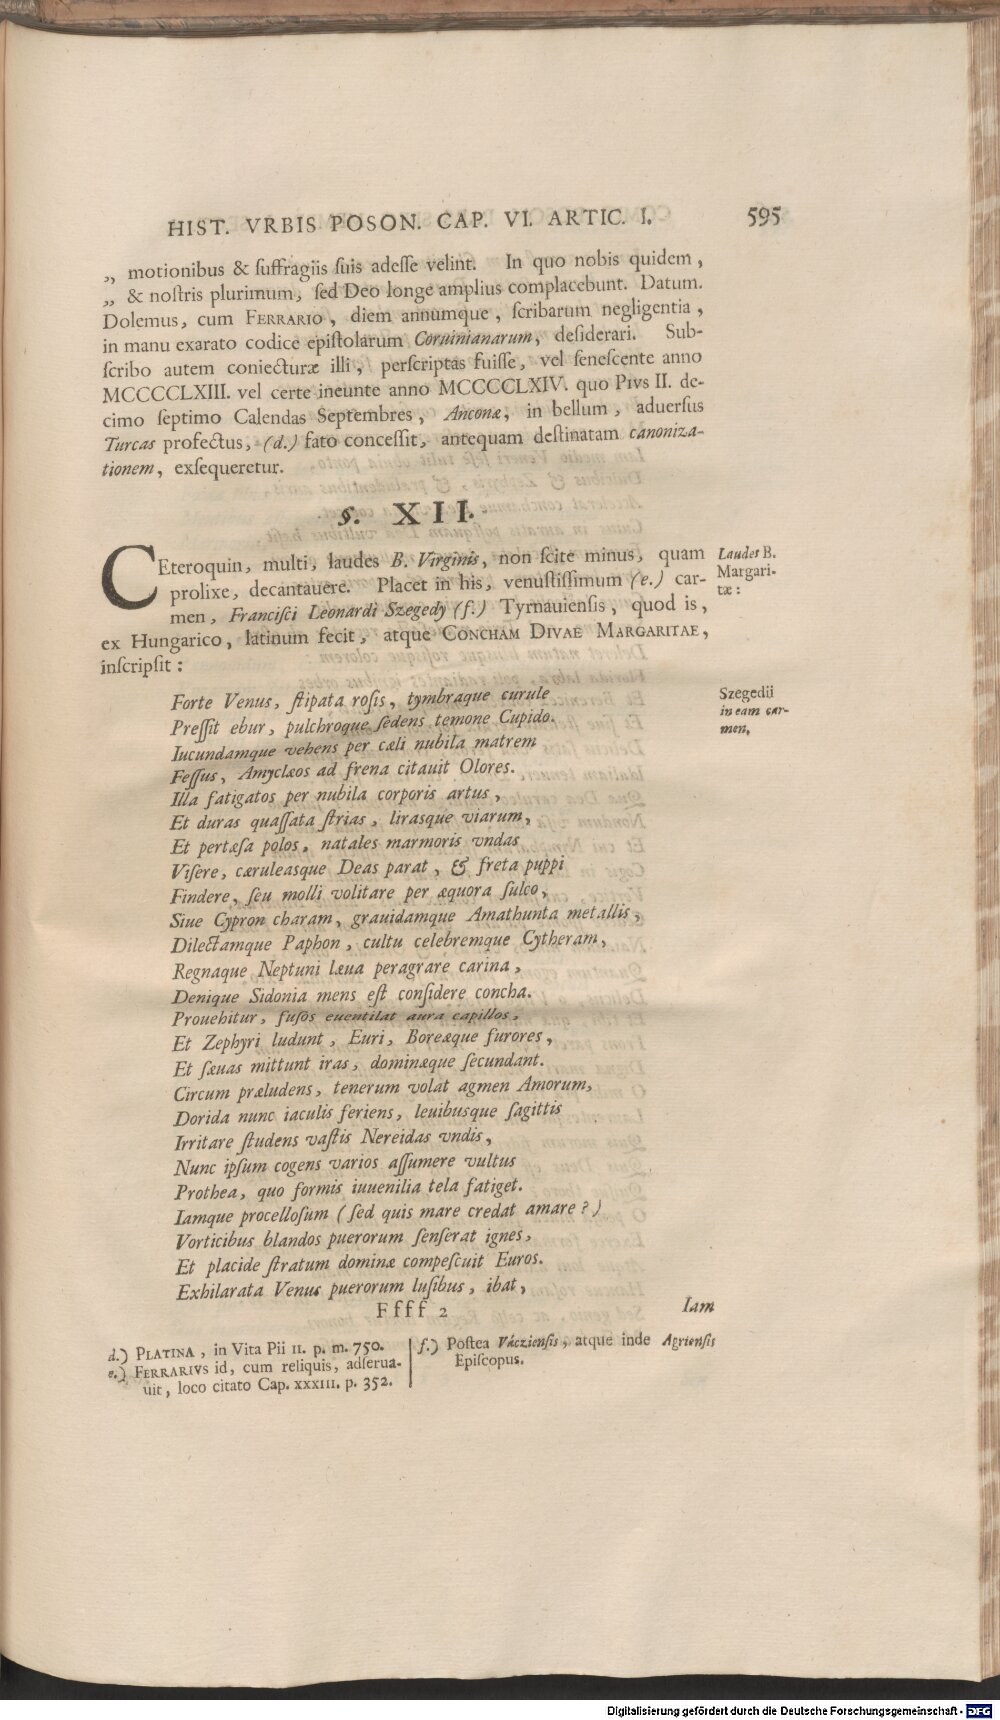 HIST. VRBIS POSON. CAP. VI. ARTIC. I. 595
„ motionibus & ſuffragiis ſuis adeſſe velint. In quo nobis quidem,
„ & noſtris plurimum, ſed Deo longe amplius complacebunt. Datum.
Dolemus, cum FERRARIO, diem annumque, ſcribarum negligentia,
in manu exarato codice epiſtolarum Coruinianarum, deſiderari. Sub-
ſcribo autem coniecturæ illi, perſcriptas fuiſſe, vel ſeneſcente anno
MCCCCLXIII. vel certe ineunte anno MCCCCLXIV. quo PIVS II. de-
cimo ſeptimo Calendas Septembres, Anconæ, in bellum, aduerſus
Turcas profectus, (d.) fato conceſſit, antequam deſtinatam canoniza-
tionem, exſequeretur.
§. XII.
CEteroquin, multi, laudes B. Virginis, non ſcite minus, quam
prolixe, decantauere. Placet in his, venuſtiſſimum (e.) car-
men, Franciſci Leonardi Szegedy (f.) Tyrnauienſis, quod is,
ex Hungarico, latinum fecit, atque CONCHAM DIVAE MARGARITAE,
inſcripſit:
Laudes B.
Margari-
tæ:
Forte Venus, ſtipata roſis, tymbraque curule
Preſſit ebur, pulchroque ſedens temone Cupido.
Iucundamque vehens per cæli nubila matrem
Feſſus, Amyclæos ad frena citauit Olores.
Illa fatigatos per nubila corporis artus,
Et duras quaſſata ſtrias, lirasque viarum,
Et pertæſa polos, natales marmoris vndas
Viſere, cæruleasque Deas parat, & freta puppi
Findere, ſeu molli volitare per æquora ſulco,
Siue Cypron charam, grauidamque Amathunta metallis,
Dilectamque Paphon, cultu celebremque Cytheram,
Regnaque Neptuni læua peragrare carina,
Denique Sidonia mens eſt conſidere concha.
Prouehitur, fuſos euentilat aura capillos,
Et Zephyri ludunt, Euri, Boreæque furores,
Et ſæuas mittunt iras, dominæque ſecundant.
Circum præludens, tenerum volat agmen Amorum,
Dorida nunc iaculis feriens, leuibusque ſagittis
Irritare ſtudens vaſtis Nereidas vndis,
Nunc ipſum cogens varios aſſumere vultus
Prothea, quo formis iuuenilia tela fatiget.
Iamque procelloſum (ſed quis mare credat amare?)
Vorticibus blandos puerorum ſenſerat ignes,
Et placide ſtratum dominæ compeſcuit Euros.
Exhilarata Venus puerorum luſibus, ibat,
Szegedii
in eam car-
men,
Ffff 2 Iam
d.) PLATINA, in Vita Pii II. p. m. 750.
e.) FERRARIVS id, cum reliquis, adſerua-
uit, loco citato Cap. XXXIII. p. 352.
f.) Poſtea Váczienſis, atque inde Agrienſis
Epiſcopus.
Digitalisierung gefördert durch die Deutsche Forschungsgemeinschaft - DFG